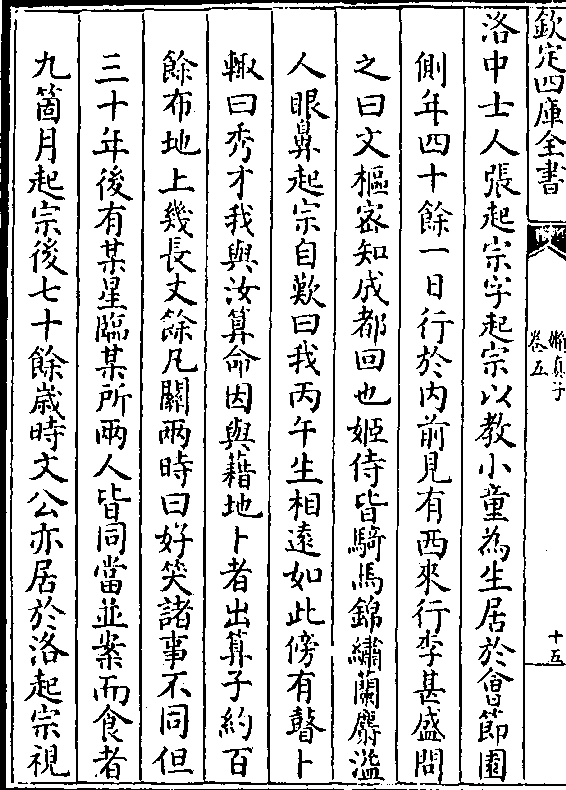 欽定四庫全書
嬾真子
卷五
十五
洛中士人張起宗字起宗以教小童為生居於會節園
側年四十餘一日行於内前見有西來行李甚盛問
之曰文樞宻知成都回也姬侍皆騎馬錦繡蘭麝溢
人眼鼻起宗自歎曰我丙午生相逺如此傍有瞽卜
輙曰秀才我與汝算命因與藉地卜者出算子約百
餘布地上幾長丈餘凡關兩時曰好笑諸事不同但
三十年後有某星臨某所兩人皆同當並案而食者
九箇月起宗後七十餘嵗時文公亦居於洛起宗視